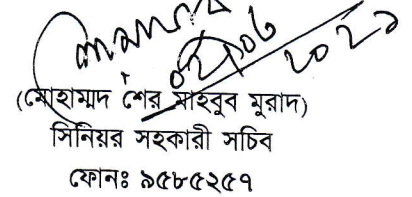 (মোহাম্মদ শের মাহবুব মুরাদ)
সিনিয়র সহকারী সচিব
ফোনঃ ৯৫৮৫২৫৭